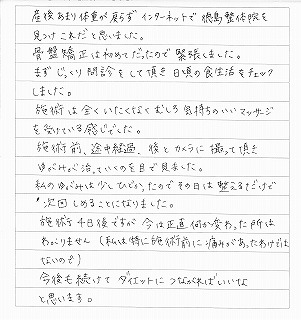 産後あまり体重が戻らずインターネットで徳島整体院を
見つけこれだと思いました。
骨盤矯正は初めてだったので緊張しました。
まずじっくり問診をして頂き日頃の食生活をチェック
しました。
施術は全くいたくなくむしろ気持ちのいいマッサージ
を受けている感じでした。
施術前、途中経過、後とカメラに撮って頂き
ゆがみが治っていくのを目で見ました。
私のゆがみは少しひどかったのでその日は整えるだけで
次回しめることになりました。
施術4日後ですが今は正直何か変わった所は
わかりません(私は特に施術前に痛みがあったわけでは
ないので)
今後も続けてダイエットにつながればいいな
と思います。